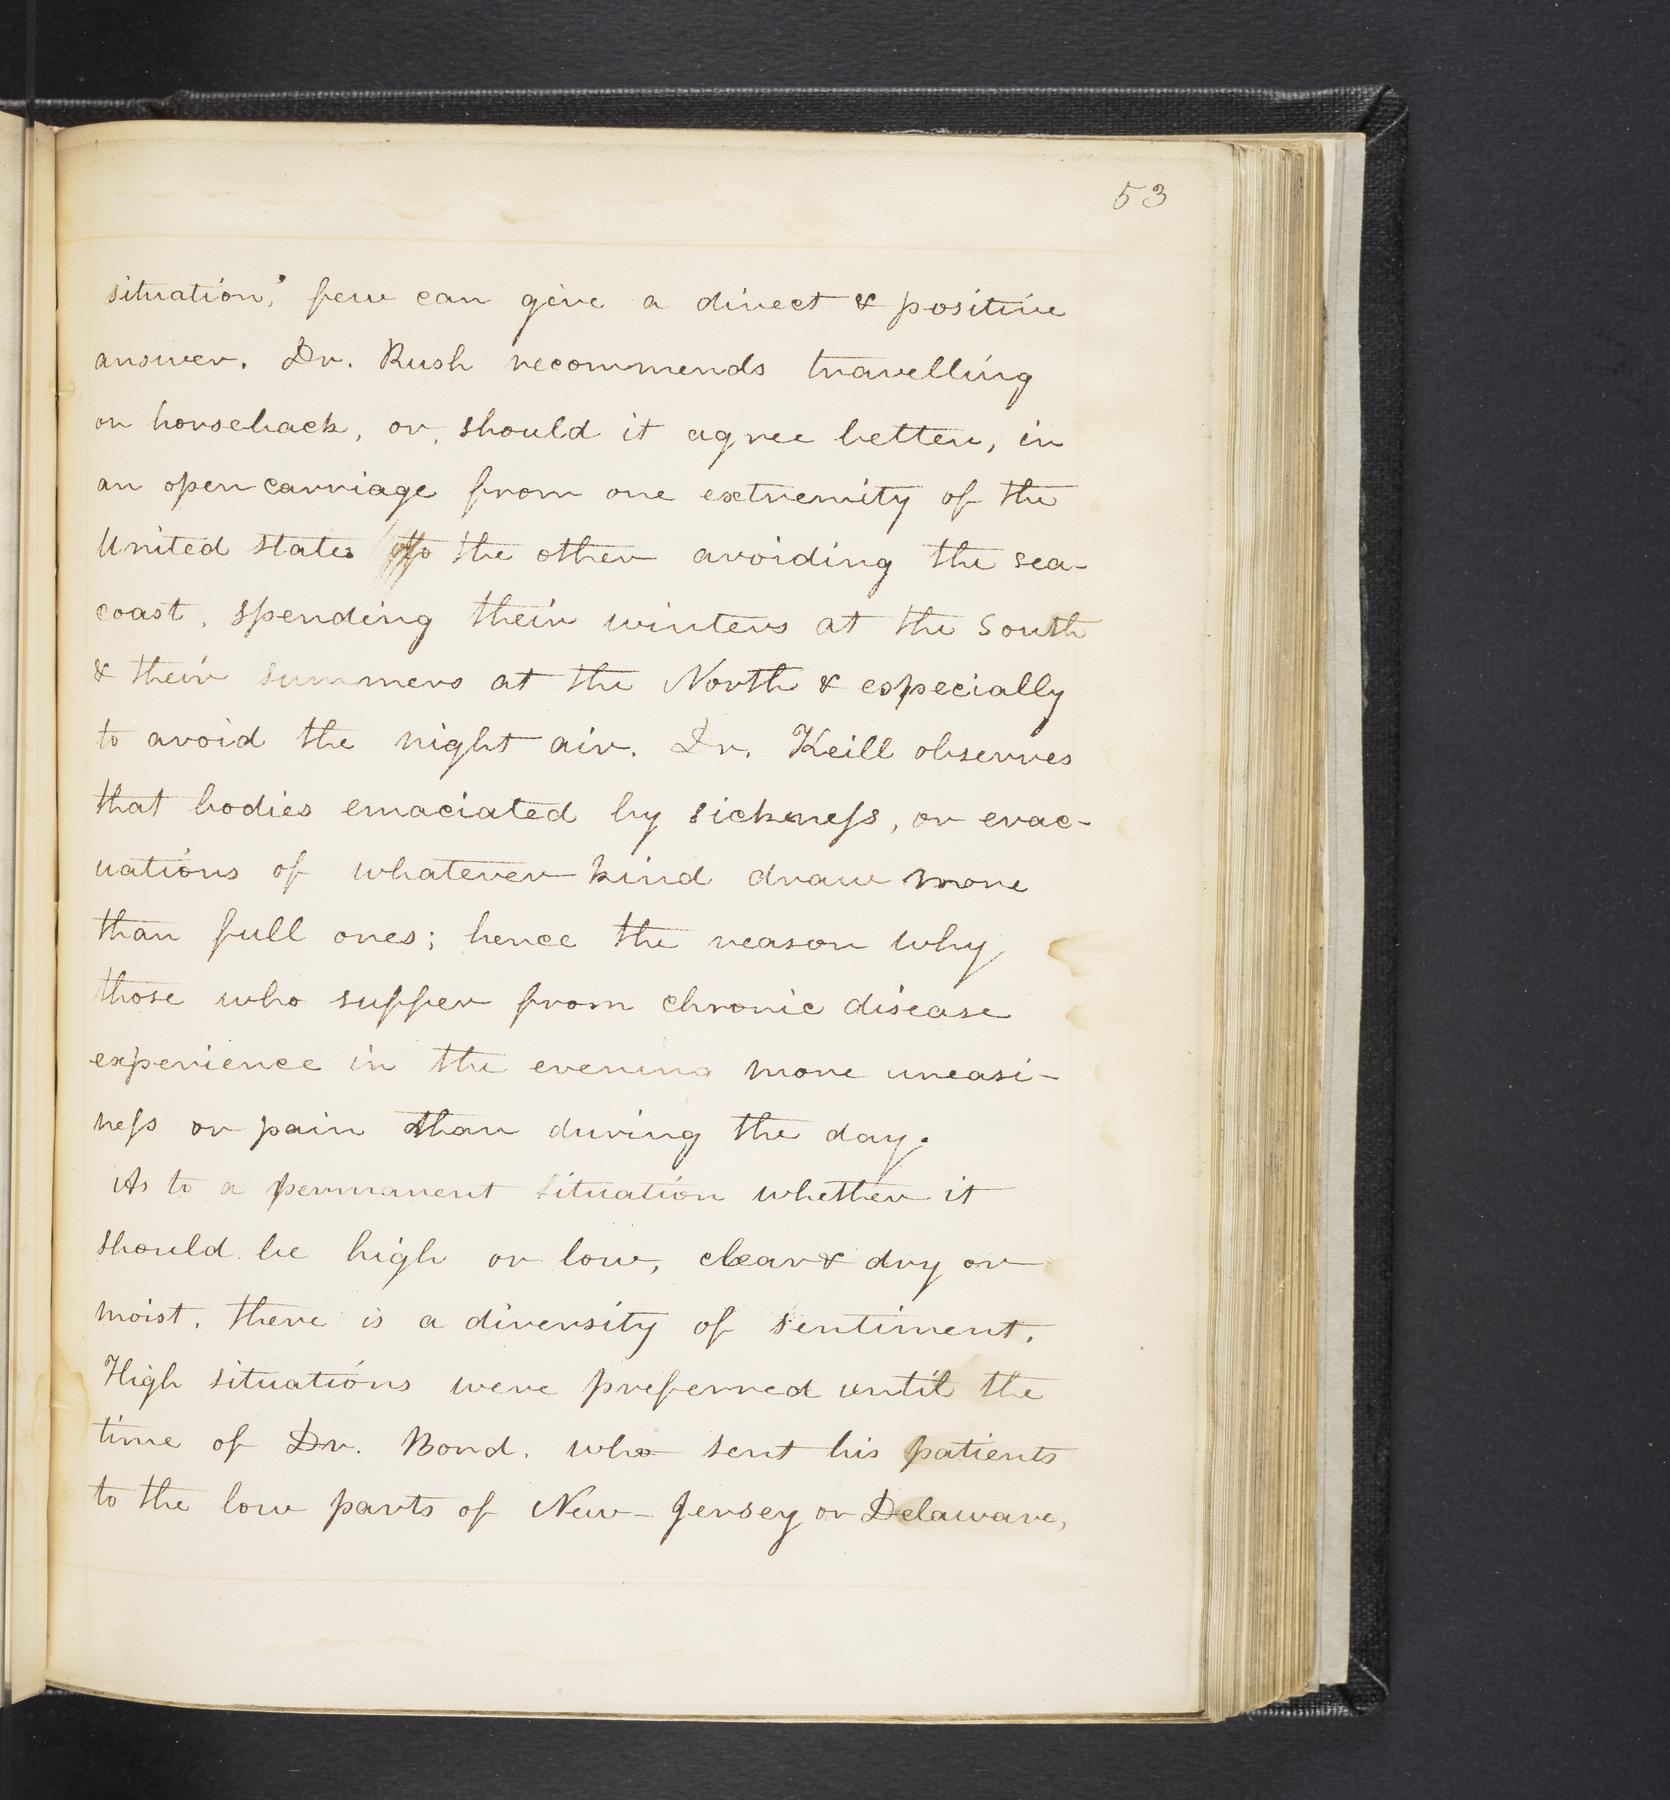 53
situation,' few can give a direct & positive
answer. Dr. Rush recommends travelling
on horseback, or, should it agree better, in
an open carriage from one extremity of the
United states to the other avoiding the sea-
coast, spending their winters at the South
& their summers at the North & especially
to avoid the night air. Dr. Keill observes
that bodies emaciated by sickness, or evac-
uations of whatever kind draw more
than full ones; hence the reason why
those who suffer from chronic disease
experience in the evening more uneasi-
ness or pain than during the day.
As to a permanent situation whether it
should be high or low, clear & dry or
moist, there is a diversity of sentiment.
High situations were preferred until the
time of Dr. Bond. who sent his patients
to the low parts of New-Jersey or Delaware,